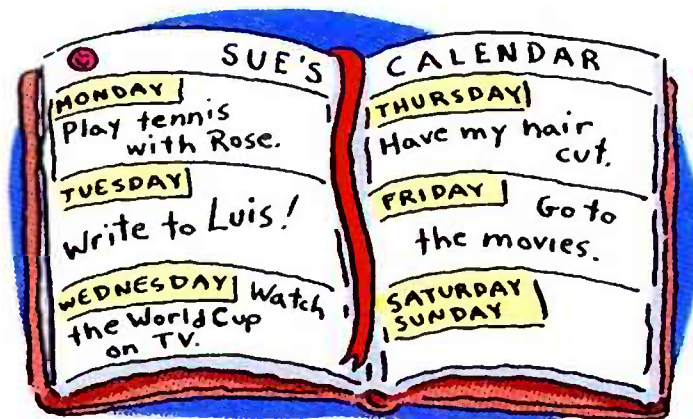 SUE'S CALENDAR
MONDAY
Play tennis
with Rose.
TUESDAY
Write to Luis!
WEDNESDAY Watch
the World Cup
on TV.
THURSDAY
Have my hair
cut.
FRIDAY Go to
the movies.
SATURDAY
SUNDAY